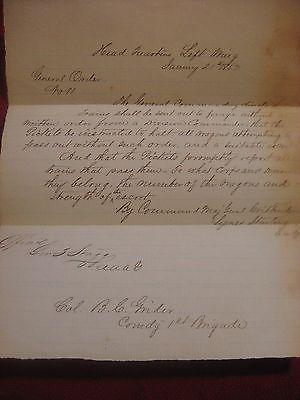 Head Quarters Left Wing
January 21st 1863
General Order
No 11
The General Commanding directs
trains shall be sent out to forage without
written order from a Division Commander that the
Pickets be instructed to halt all wagons attempting
pass out without such order, and a suitable
And that the Pickets promptly report
trains that pass them to what Corps and
they belong, the number of the wagons and
strength of the escort
By Command Maj Genl Crittenden
Lyne Starling
Official
Geo
Col. B. C. Grider
Comdg 1st Brigade